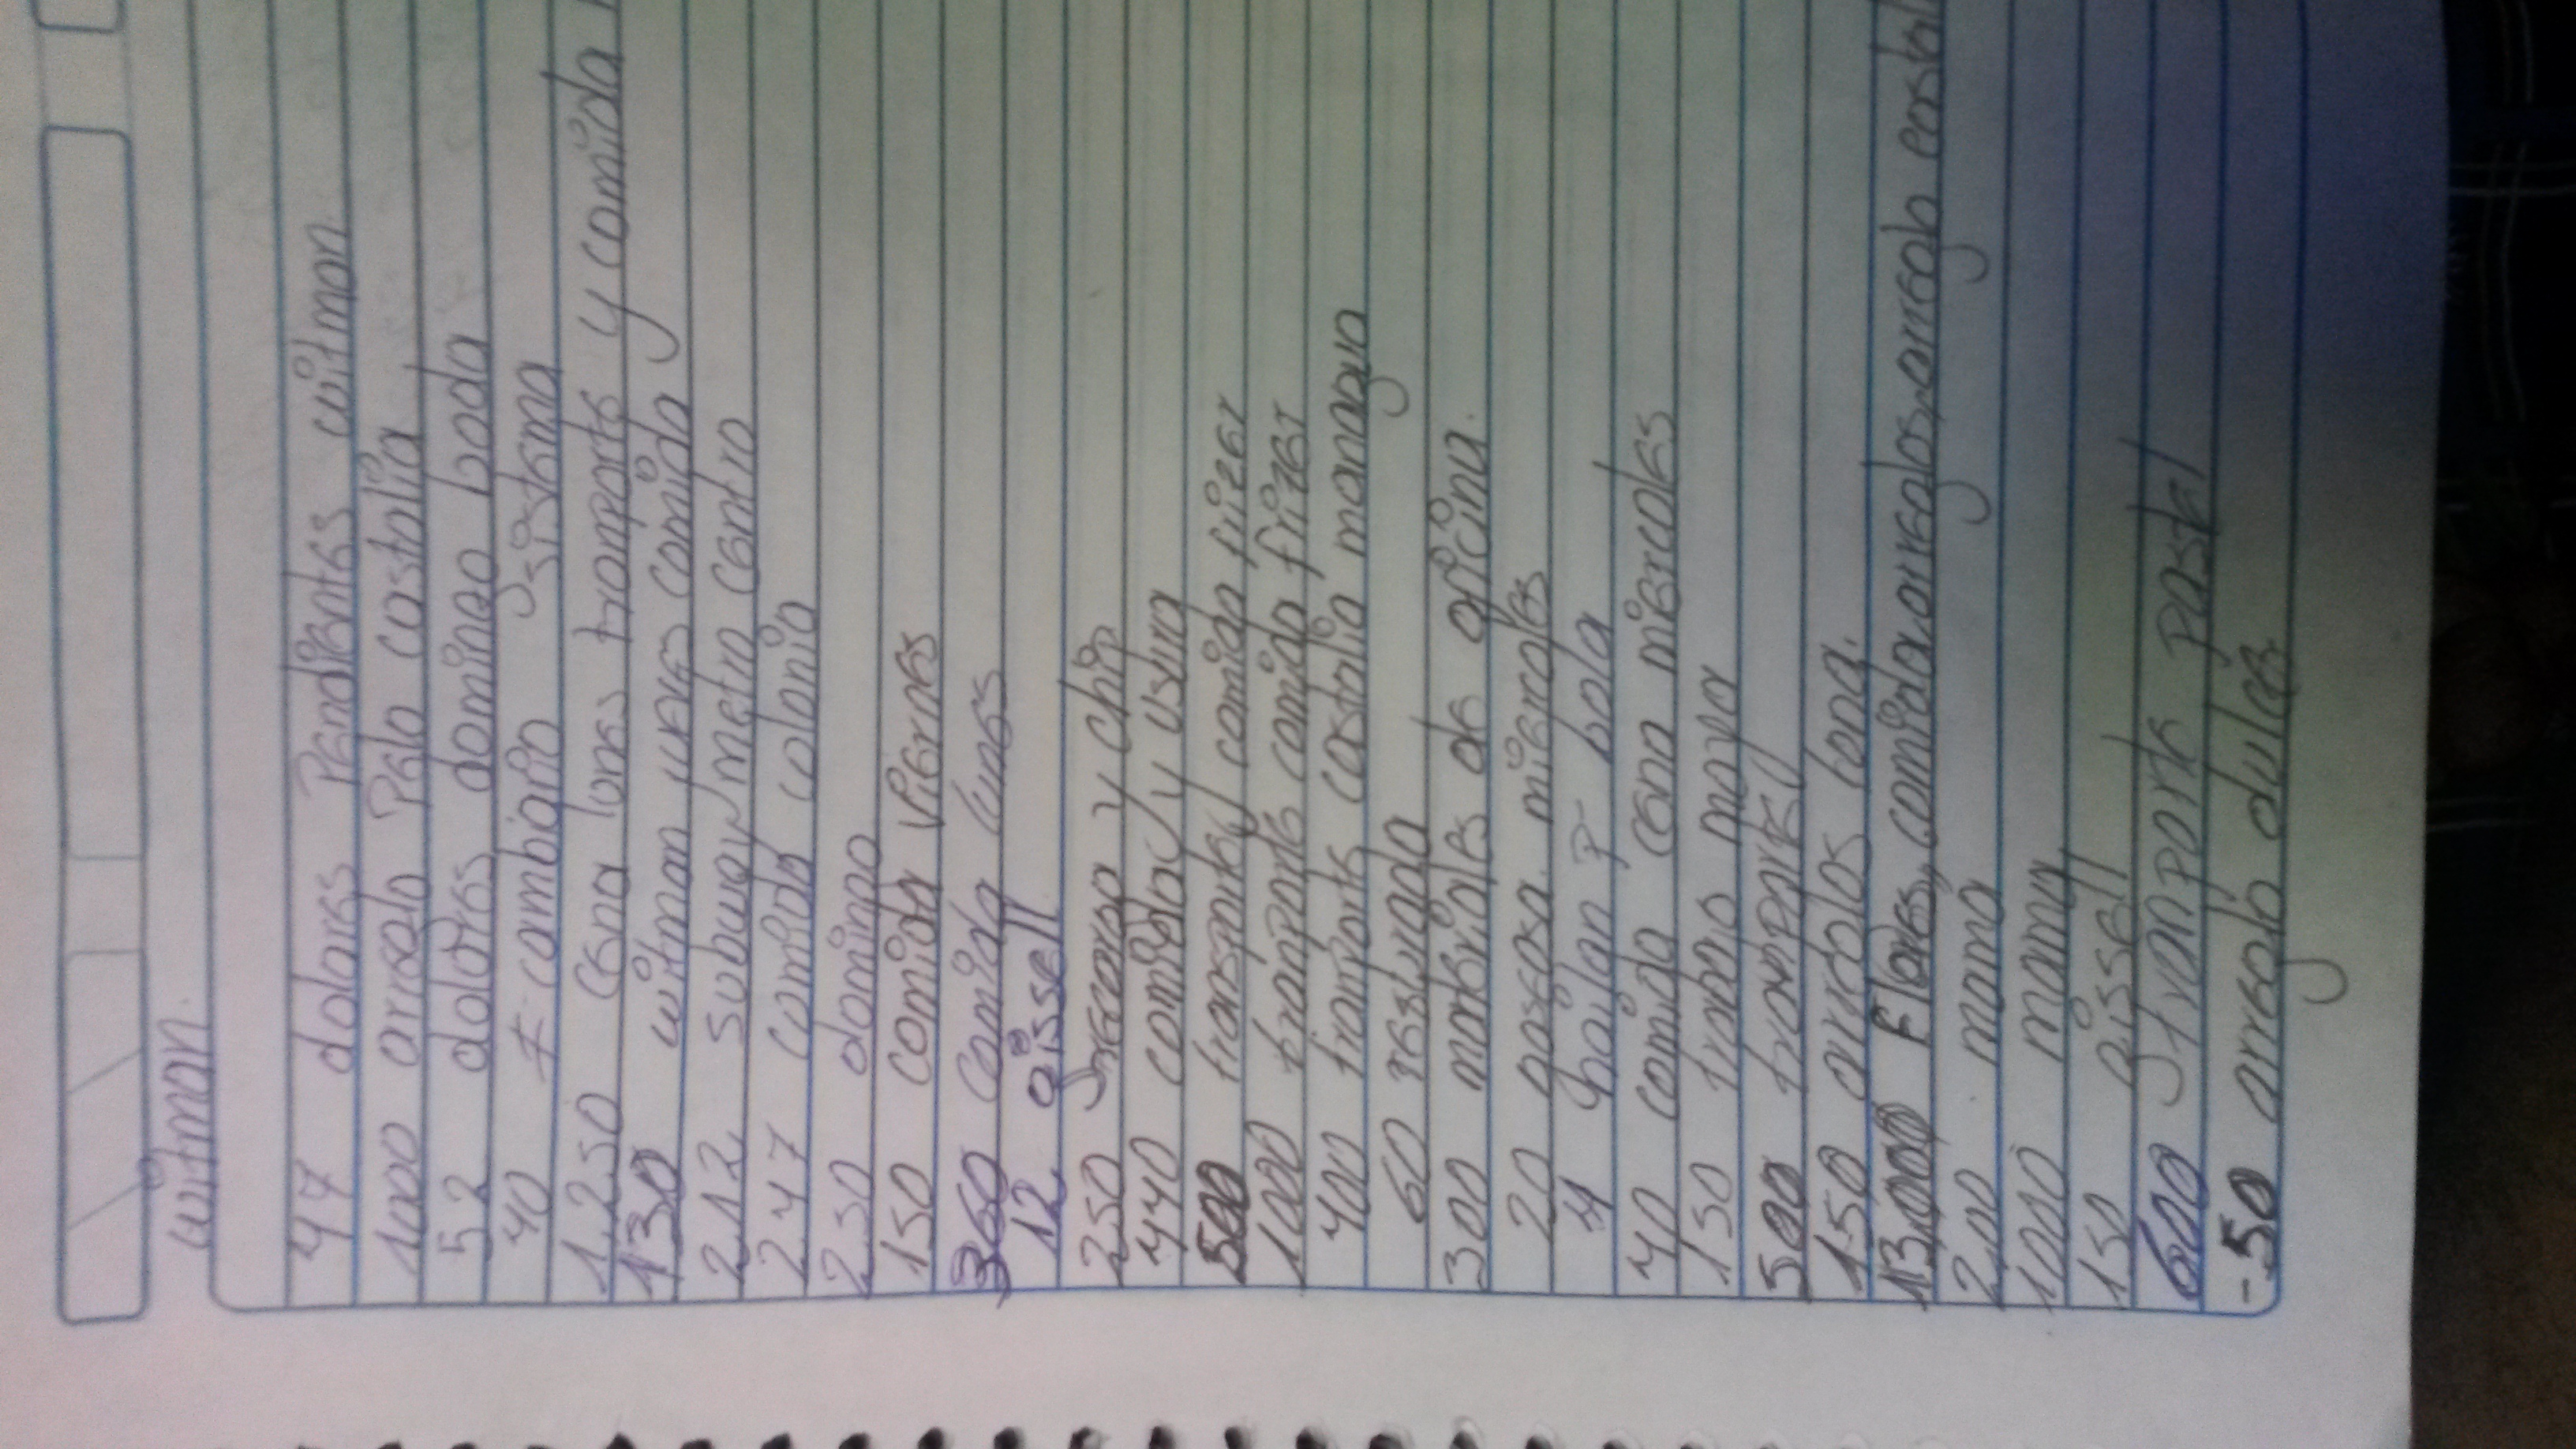 witman
47 dolares Pendientes witman
1000 arreglo Pelo castalia
52 dolares domingo boda
40 cambiario sistema
1,250 cena lunes tranporte y comida
130 witman jueves comida
212 subway metro centro
247 comida colonia
250 domingo
150 comida viernes
360 comida lunes
12 gissell
250 recarga y chip
440 comida y usura
500 transporte comida frizer
1000 tranporte comida frizer
400 tranporte castalia managua
60
300 materiales de oficina.
20 gaseosa miercoles
4 bola
40 comida cena miercoles
150 trabajo mayor
500 tranporte
150 arreglos lona.
13,000 Flores, comida, arreglos, arreglo
200 mama
1000 mama
150 gissell
600 tranporte pastel
-50 arreglo dulce